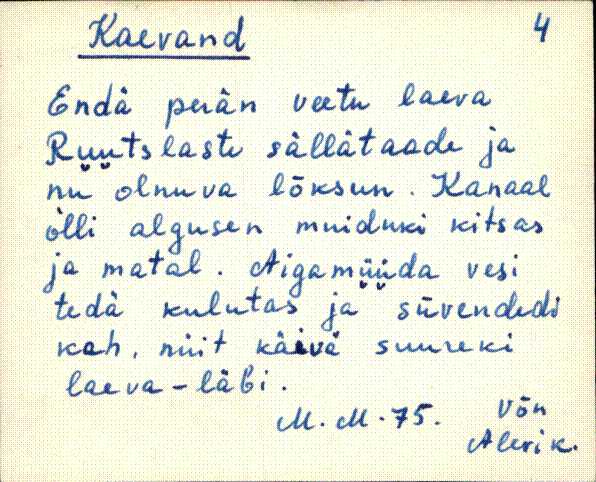 Kaevand 4
Endä perän veetu laeva
Rüütslastu sällätaade ja
nu olnuva lõksun. Kanaal
õlli algusen muiduki kitsas
ja matal. Aigamüüda vesi
tedä kulutas ja süvendedi
kah, nüit käivä suureki
laeva-läbi.
M. M. 75. Võn
Alerik.